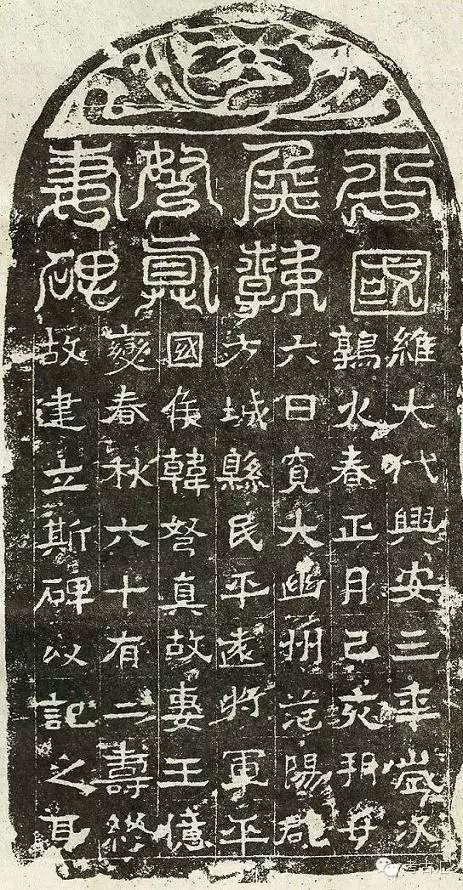 平國
侯韓
弩真
妻碑
維大代興安三年歲次
鶉火春正月己亥朔廿
六日寬大幽州范陽郡
方城縣民平遠將軍平
國侯韓弩真故妻王億
變春秋六十有二壽終
故建立斯碑以記之耳